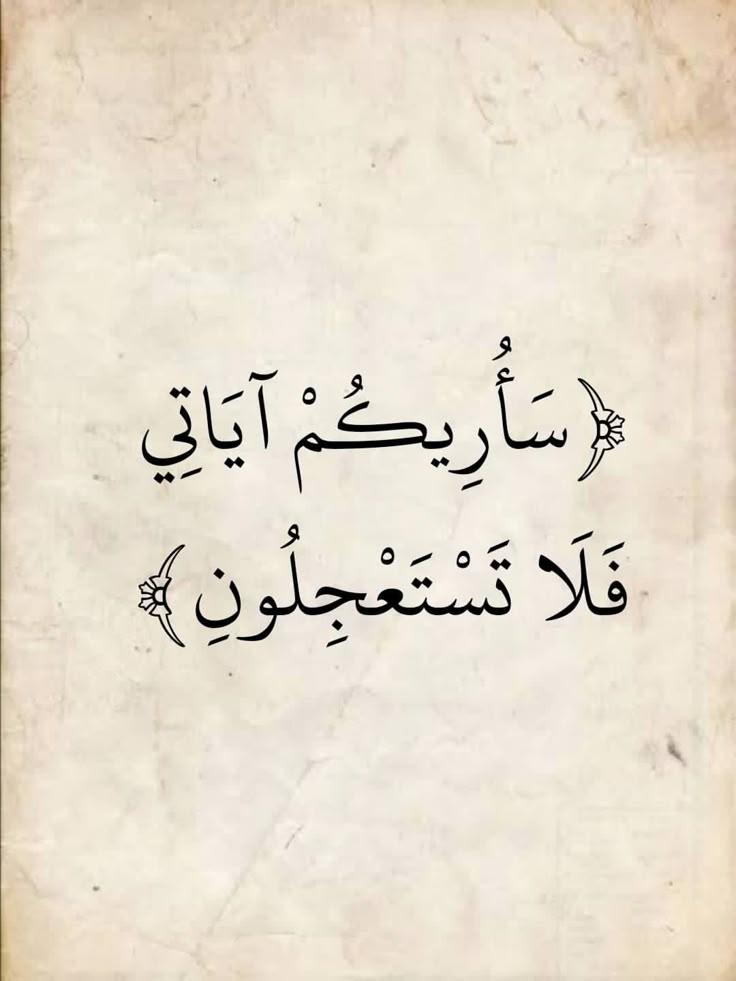 ﴿ سَأُرِيكُمْ آيَاتِي
فَلَا تَسْتَعْجِلُونِ ﴾